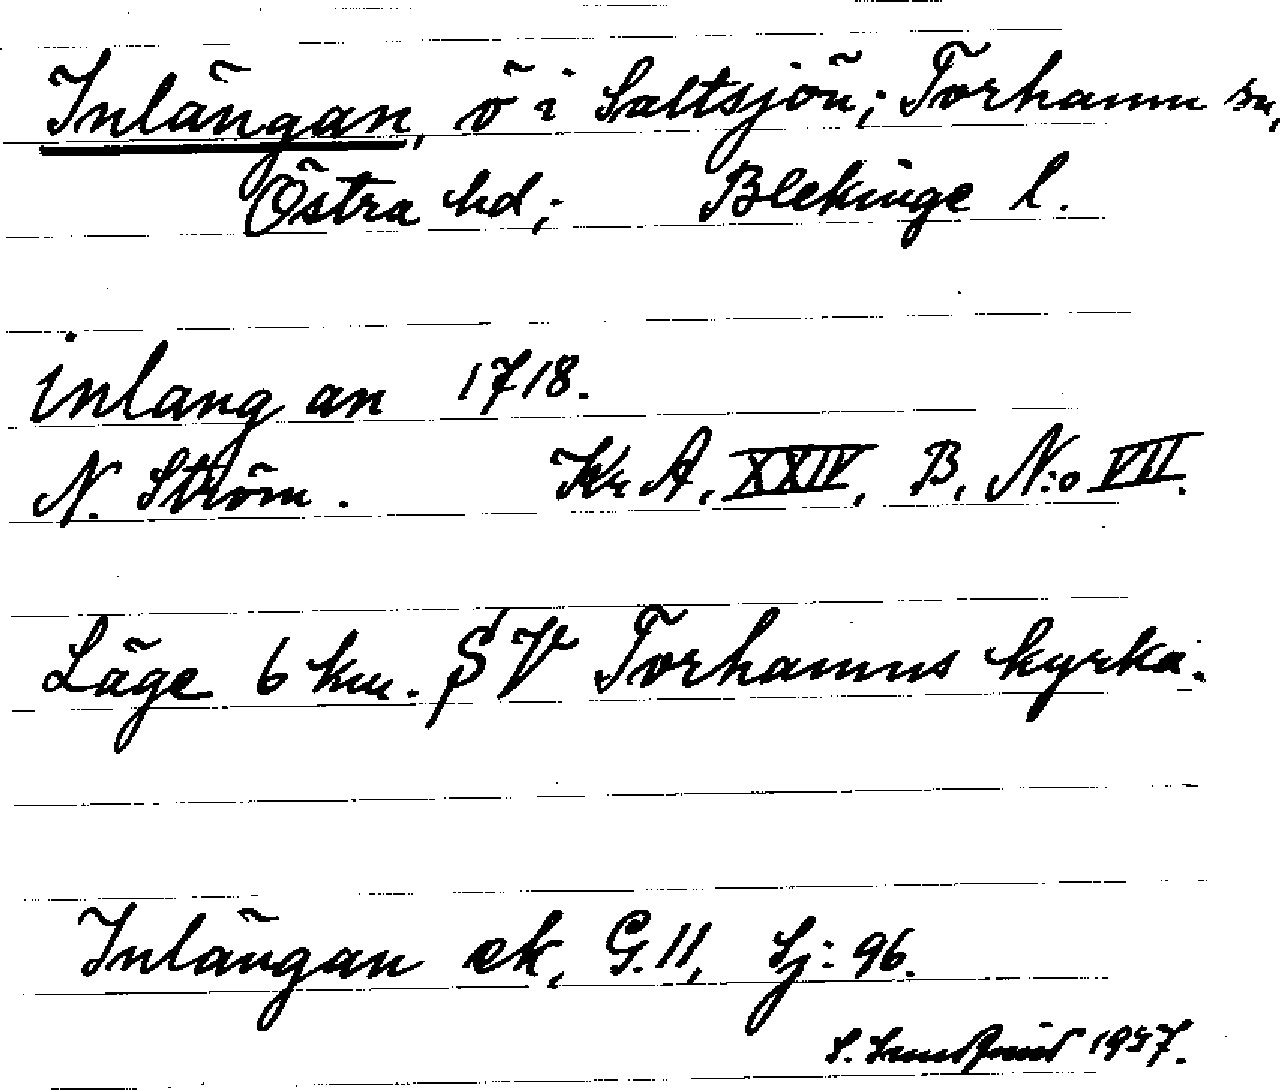 Inlängan, ö i Saltsjön; Torhamn sn,
Östra hd; Blekinge l.
inlang an 1718.
N. Ström. Kr. A. XXIV, B, N:o VII.
Läge 6 km. SV Torhamns kyrka.
Inlängan ek, G.11, Sj: 96.
S. 1937.